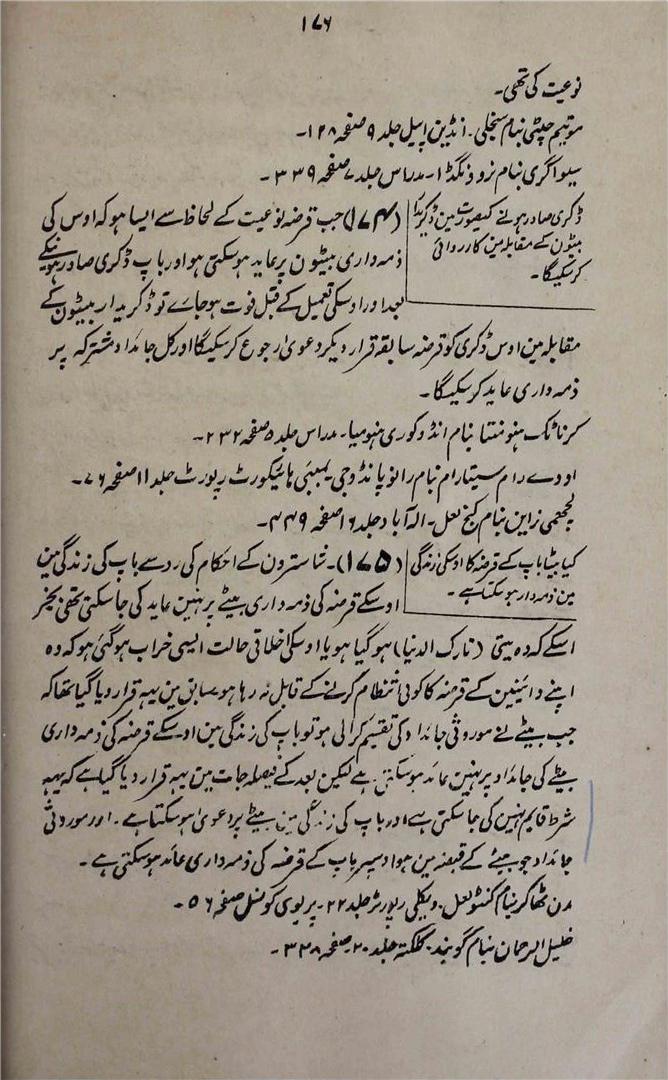 ۱۷۶
نوعیت کی تھی۔
موتیہم چپٹی بنام سنجلی۔ انڈین اپیل جلد ۹ صفحہ ۱۲۸۔
سیواگری بنام نرو ذنگڈا۔ مدراس جلد ۷ صفحہ ۳۳۹۔
ڈکری صادر ہونے کیصورت مین ڈکریدار
بیٹون کے مقابلہ مین کارروائی
کرسکیگا۔
(۱۷۴) جب قرضہ نوعیت کے لحاظ سے ایسا ہو کہ اوس کی
ذمہ داری بیٹون پر عاید ہوسکتی ہو اور باپ ڈکری صادر ہونیکے
بعد اور اوسکی تعمیل کے قبل فوت ہوجاے تو ڈکریدار بیٹون کے
مقابلہ مین اوس ڈکری کو قرضہ سابقہ قرار دیکر دعویٰ رجوع کرسکیگا اور کل جائداد مشترکہ پر
ذمہ داری عاید کرسکیگا۔
کرناٹک ہنومنتا بنام انڈوکوری ہنومیا۔ مدراس جلد ۵ صفحہ ۲۳۲۔
اودے رام سیتارام بنام رانو پانڈوجی بمبئی ہائیکورٹ رپورٹ جلد ۱۱ صفحہ ۷۶۔
لچھمی نراین بنام کنج لعل۔ الہ آباد جلد ۱۶ صفحہ ۴۴۹۔
کیا بیٹا باپ کے قرضہ کا اوسکی زندگی
مین ذمہ دار ہوسکتا ہے۔
(۱۷۵)۔ شاسترون کے احکام کی رو سے باپ کی زندگی مین
اوسکے قرضہ کی ذمہ داری بیٹے پر نہین عاید کی جاسکتی تھی بجز
اسکے کہ وہ یتی (تارک الدنیا) ہو گیا ہو یا اوسکی اخلاقی حالت ایسی خراب ہوگئی ہو کہ وہ
اپنے دائنین کے قرضہ کا کوئی انتظام کرنے کے قابل نہ رہا ہو سابق مین یہہ قرار دیا گیا تھا کہ
جب بیٹے نے موروثی جائداد کی تقسیم کرالی ہو تو باپ کی زندگی مین اوسکے قرضہ کی ذمہ داری
بیٹے کی جائداد پر نہین عائد ہوسکتی ہے لیکن بعد کے فیصلہ جات مین یہہ قرار دیا گیا ہے کہ یہہ
شرط قایم نہین کی جاسکتی ہے اور باپ کی زندگی مین بیٹے پر دعویٰ ہوسکتا ہے۔ اور موروثی
جائداد جو بیٹے کے قبضہ مین ہو اوسپر باپ کے قرضہ کی ذمہ داری عائد ہوسکتی ہے۔
مدن ٹھاکر بنام کنٹو لعل۔ ویکلی رپورٹر جلد ۲۲۔ پریوی کونسل صفحہ ۵۶۔
خلیل الرحمان بنام گوبند۔ کلکتہ جلد ۲۰۔ صفحہ ۳۲۸۔